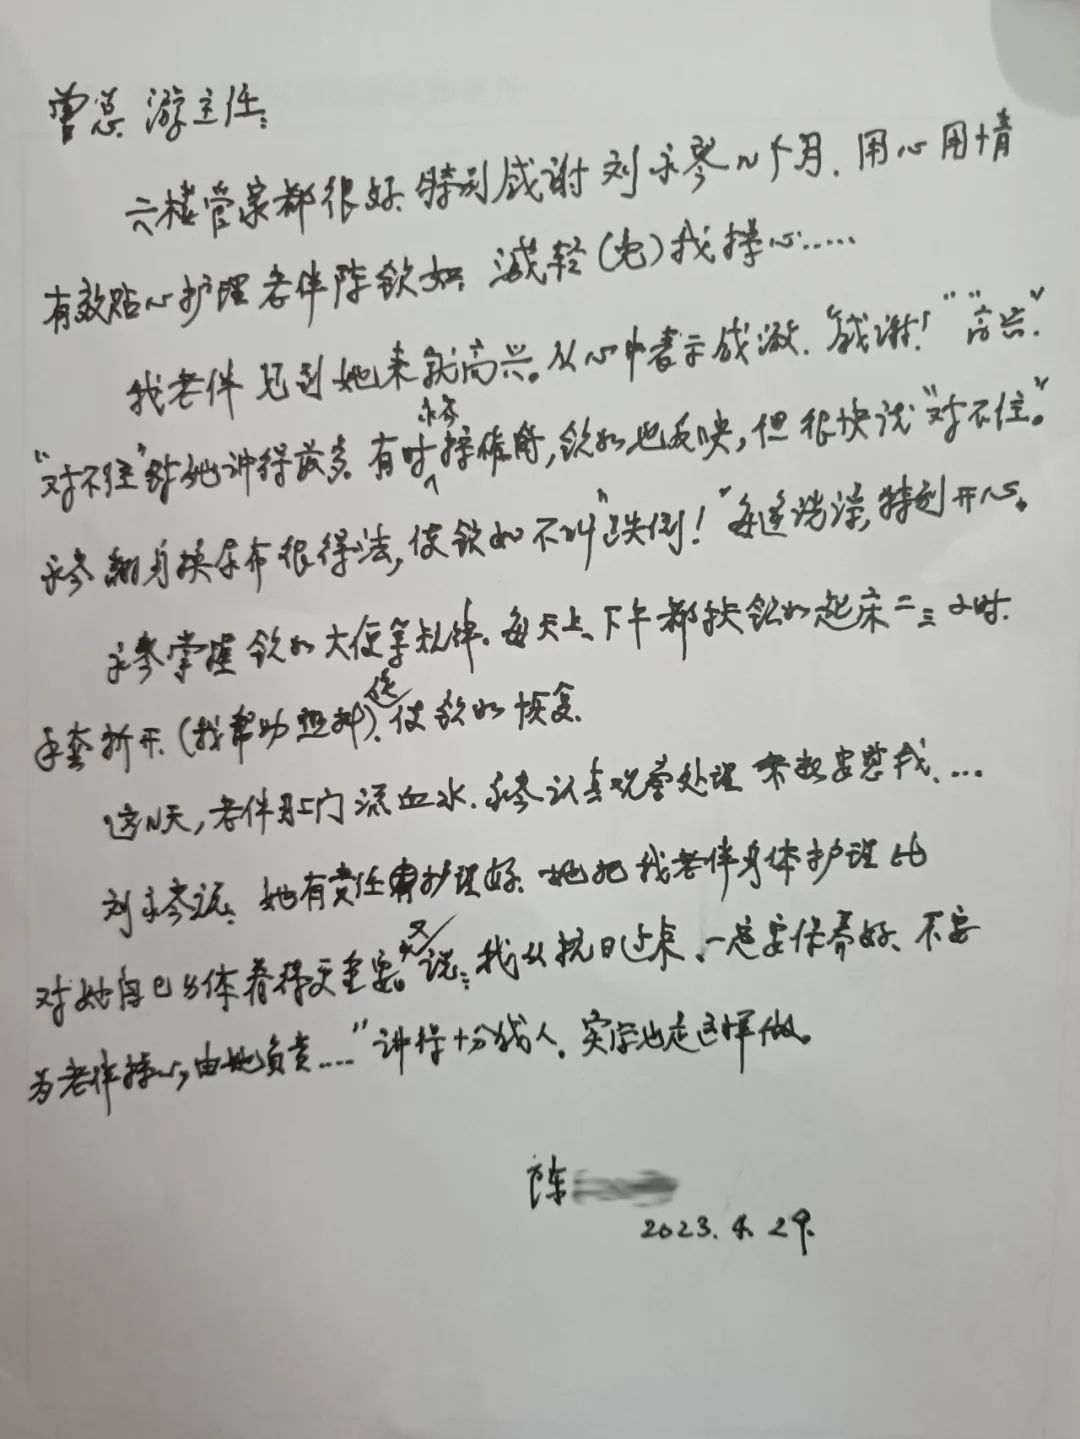 曾总 游主任:
六楼管家都很好.特别感谢刘永琴几个月.用心用情
有效贴心护理老伴陈钦如 减轻(免)我操心……
我老伴见到她来就高兴。从心中表示感激."感谢!""高兴."
"对不住"对她讲得最多 有时永琴 ,钦如也反映,但很快说"对不住。"
永琴翻身换尿布很得法,使钦如不叫"跌倒!"每逢洗澡,特别开心。
永琴掌握钦如大便等规律。每天上、下午都扶钦如起床二三小时.
手套拆开.(我帮助照料).促使钦如恢复.
这几天,老伴肛门流血水.永琴认真观察处理 安慰我、…
刘永琴说:她有责任护理好.她把我老伴身体护理比
对她自已身体看得更重要。又说:我从抗日过来、一定要保养好、不要
为老伴操心,由她负责……"讲得十分感人.实际也是这样做。
陈
2023.4.29.